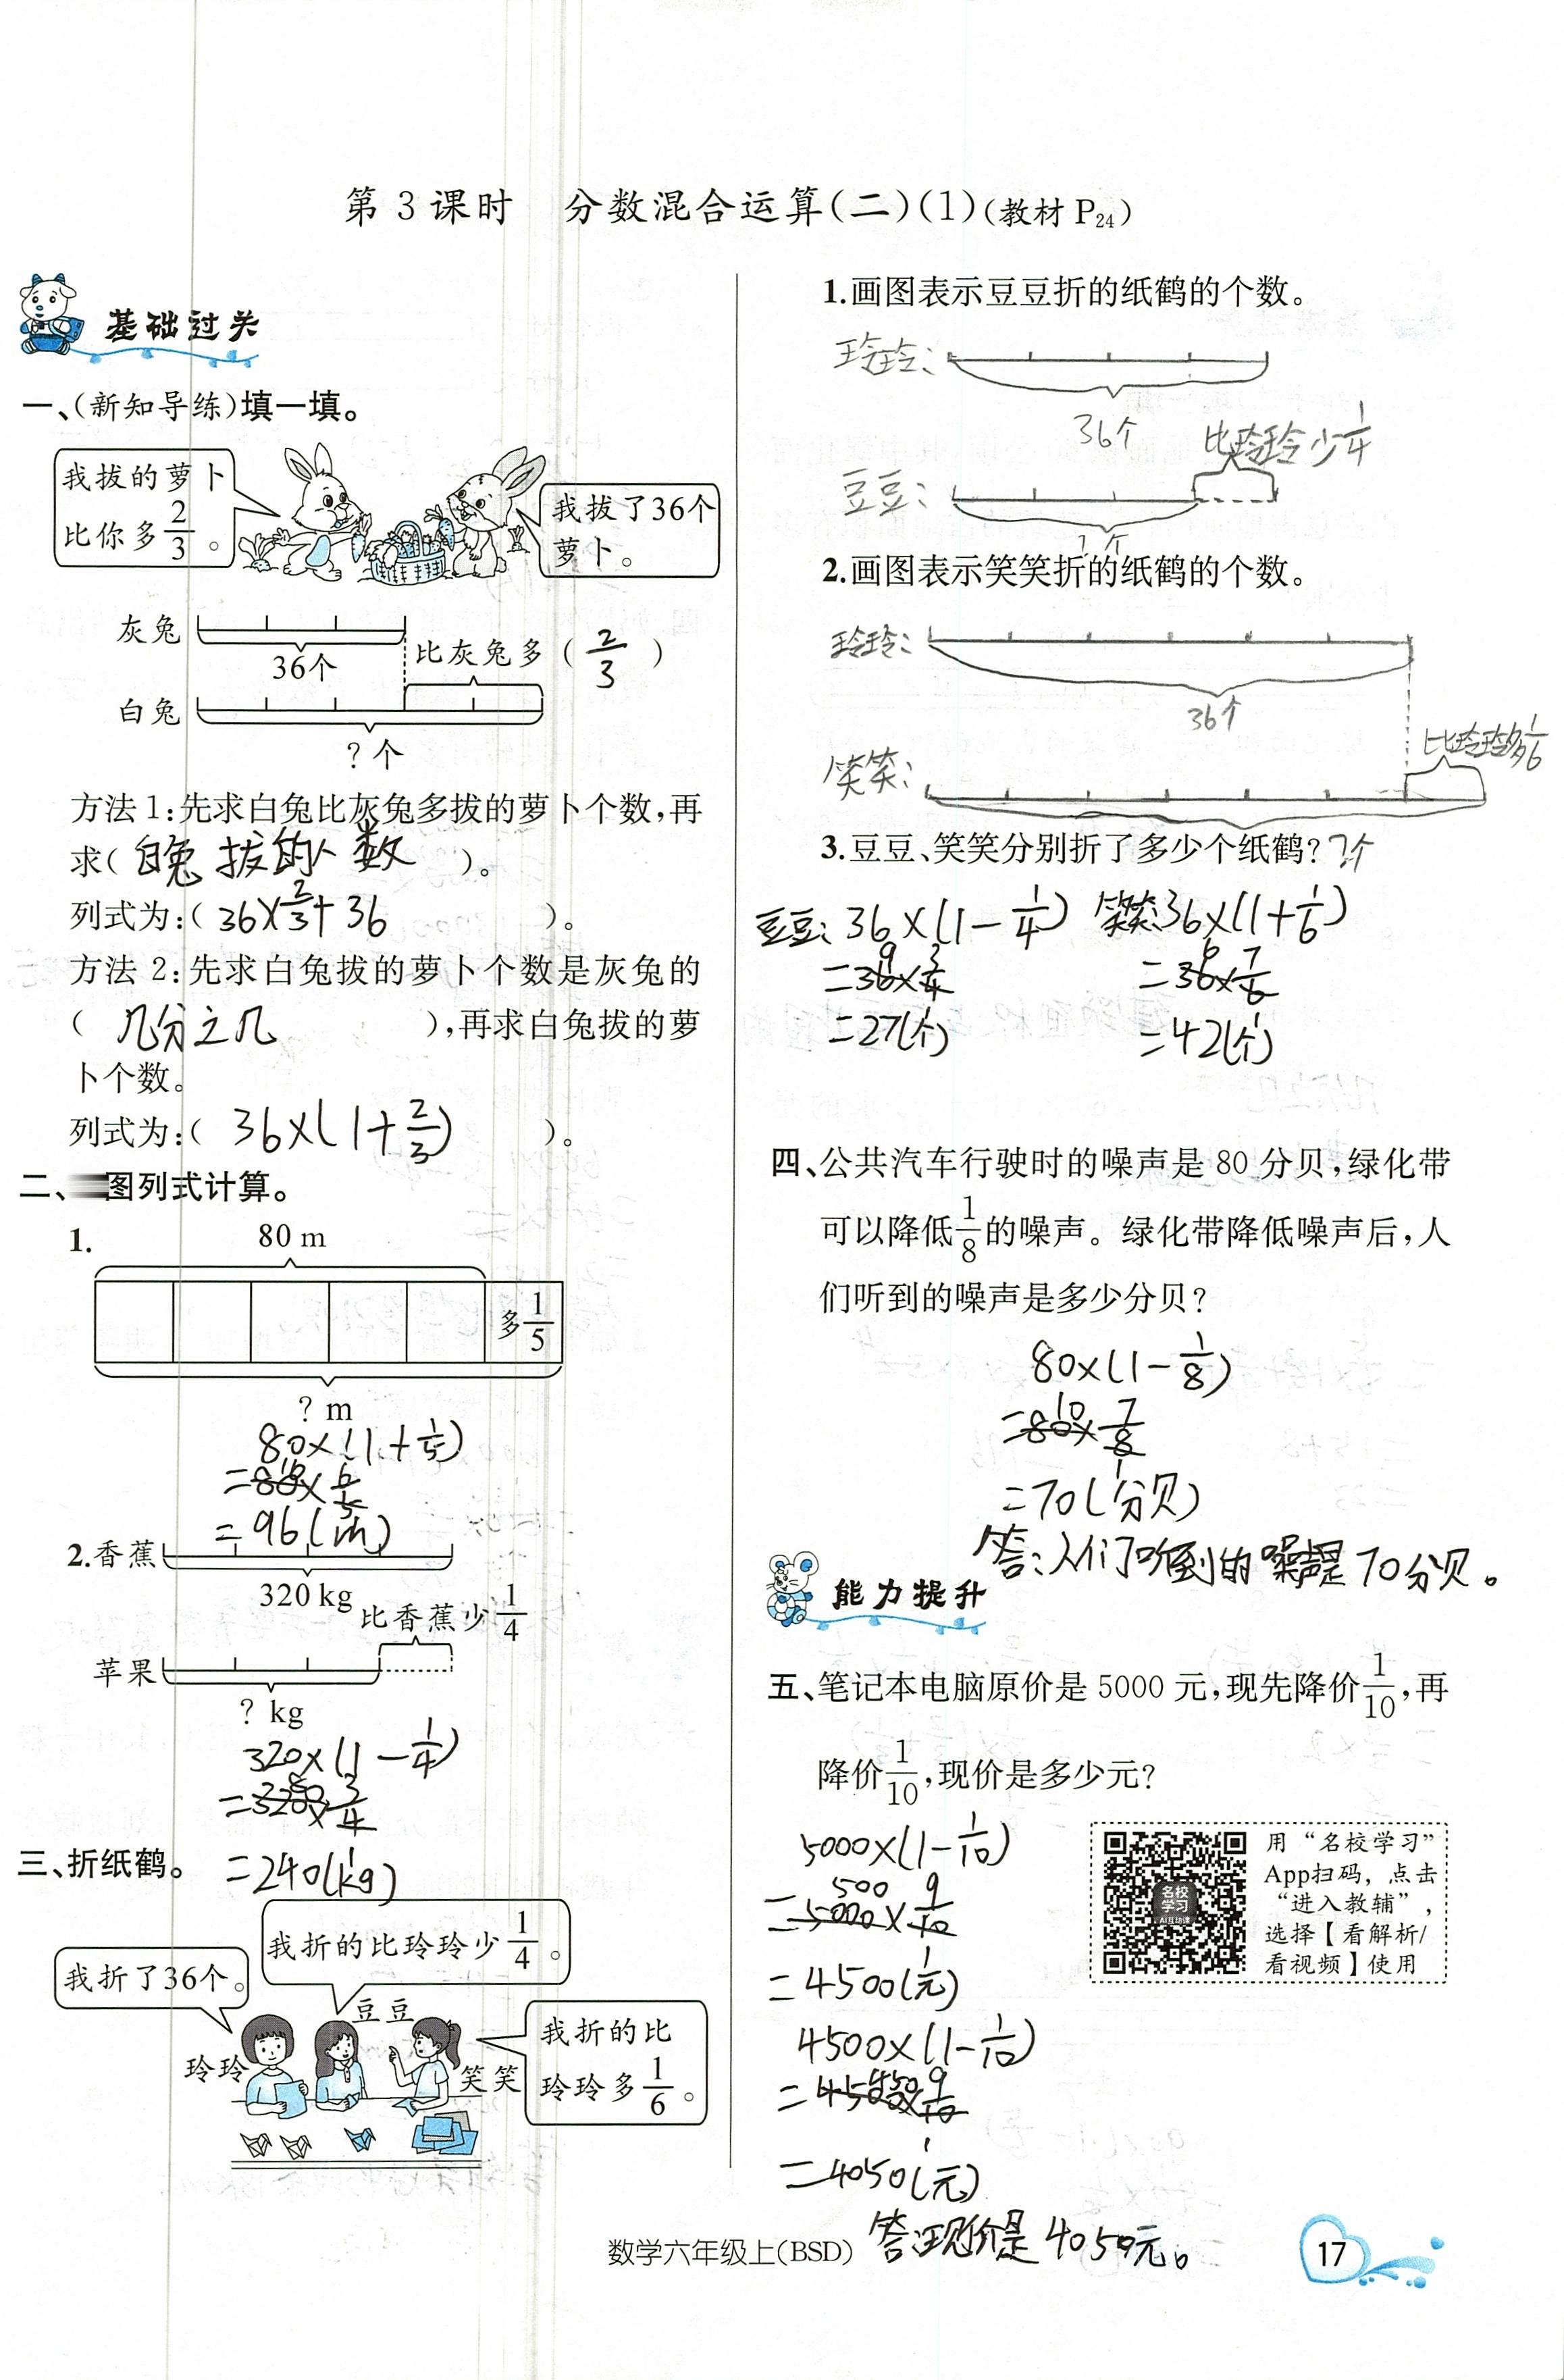 第 3 课时 分数混合运算(二)(1)(教材 P24)
基础过关
一、(新知导练)填一填。
我拔的萝卜
比你多2/3。
我拔了36个
萝卜。
灰兔
36个
比灰兔多(2/3)
白兔
?个
方法 1:先求白兔比灰兔多拔的萝卜个数,再
求(白兔拔的个数)。
列式为:(36×2/3+36)。
方法 2:先求白兔拔的萝卜个数是灰兔的
(几分之几),再求白兔拔的萝
卜个数。
列式为:(36×(1+2/3))。
二、图列式计算。
1.
80 m
多1/5
? m
80×(1+1/5)
=80×6/5
=96(m)
2.香蕉
320 kg
比香蕉少1/4
苹果
? kg
320×(1-1/4)
=320×3/4
=240(kg)
三、折纸鹤。
我折的比玲玲少1/4。
我折了36个。
豆豆
我折的比
玲玲多1/6。
玲玲
笑笑
1.画图表示豆豆折的纸鹤的个数。
玲玲:
36个
比玲玲少1/4
豆豆:
?个
2.画图表示笑笑折的纸鹤的个数。
玲玲:
36个
比玲玲多1/6
笑笑:
?个
3.豆豆、笑笑分别折了多少个纸鹤?
豆豆:36×(1-1/4) 笑笑:36×(1+1/6)
=36×3/4 =36×7/6
=27(个) =42(个)
四、公共汽车行驶时的噪声是 80 分贝,绿化带
可以降低1/8的噪声。绿化带降低噪声后,人
们听到的噪声是多少分贝?
80×(1-1/8)
=80×7/8
=70(分贝)
答:人们听到的噪声是70分贝。
能力提升
五、笔记本电脑原价是 5000 元,现先降价1/10,再
降价1/10,现价是多少元?
5000×(1-1/10)
=5000×9/10
=4500(元)
4500×(1-1/10)
=4500×9/10
=4050(元)
答:现价是4050元。
名校
学习
AI互动课
用“名校学习”
App扫码,点击
“进入教辅”,
选择【看解析/
看视频】使用
数学六年级上(BSD)
17